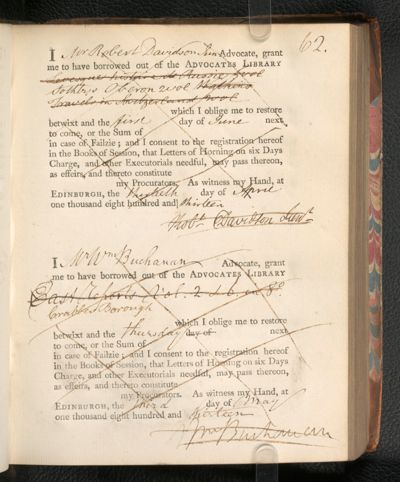 62.
I Mr Robert Davidson Junr Advocate, grant
me to have borrowed out of the ADVOCATES LIBRARY
Levesque histoire de Russie 5 vol
Sothebys Oberon 2 vol
Travels in Switzerland 3 vol
which I oblige me to restore
betwixt and the first day of June next,
to come, or the Sum of
in case of Failzie; and I consent to the registration hereof
in the Books of Session, that Letters of Horning on six Days
Charge, and other Executorials needful, may pass thereon,
as effeirs, and thereto constitute
my Procurators. As witness my Hand, at
EDINBURGH, the day of April
one thousand eight hundred and thirteen
Robt. Davidson Junr.
I Mr Wm Buchanan Advocate, grant
me to have borrowed out of the ADVOCATES LIBRARY
East Reports Vol. 2 & 6, in 8o.
Crabbs Borough
which I oblige me to restore
betwixt and the thursday day of next
to come, or the Sum of
in case of Failzie; and I consent to the registration hereof
in the Books of Session, that Letters of Horning on six Days
Charge, and other Executorials needful, may pass thereon,
as effeirs, and thereto constitute
my Procurators. As witness my Hand, at
EDINBURGH, the third day of May
one thousand eight hundred and thirteen
Wm Buchanan